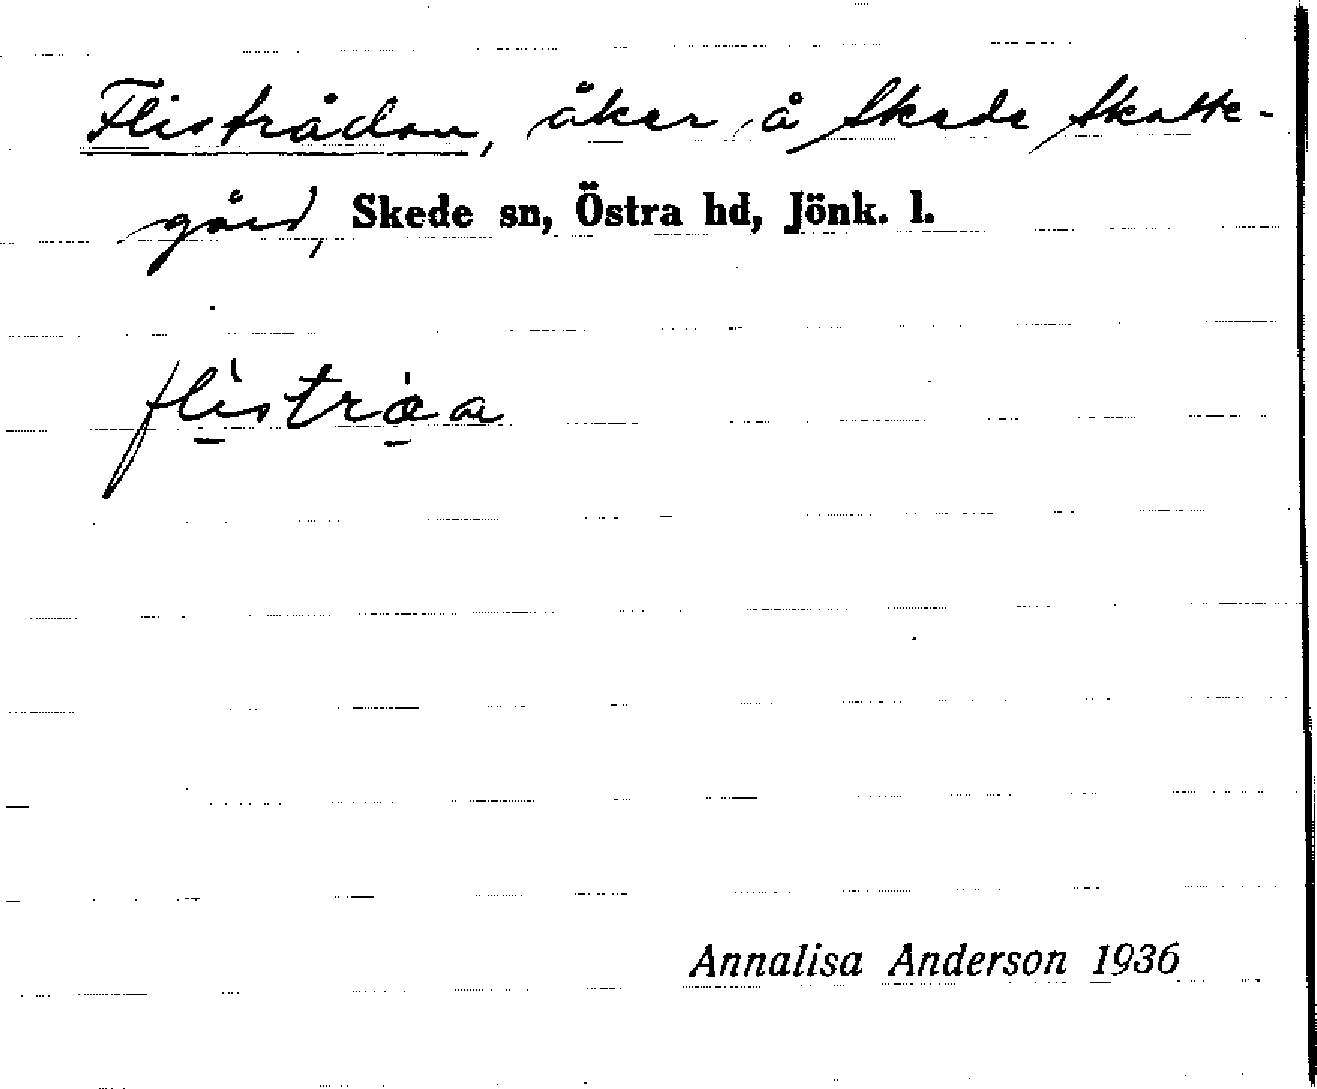 Flistrådan, åker å Skede Skatte-
gård, Skede sn, Östra hd, Jönk. l.
Annalisa Anderson 1936